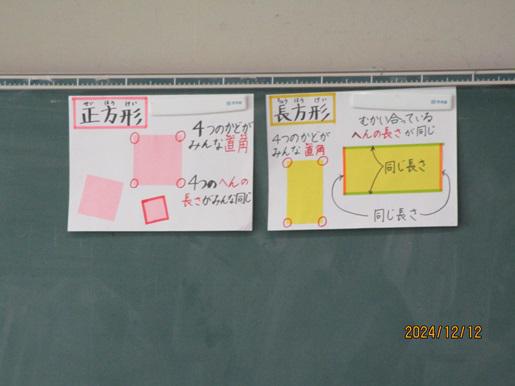 せい ほう けい
正方形
4つのかどが
みんな直角
4つのへんの
長さがみんな同じ
ちょう ほう けい
長方形
4つのかどが
みんな直角
むかい合っている
へんの長さが同じ
同じ長さ
同じ長さ
2024/12/12